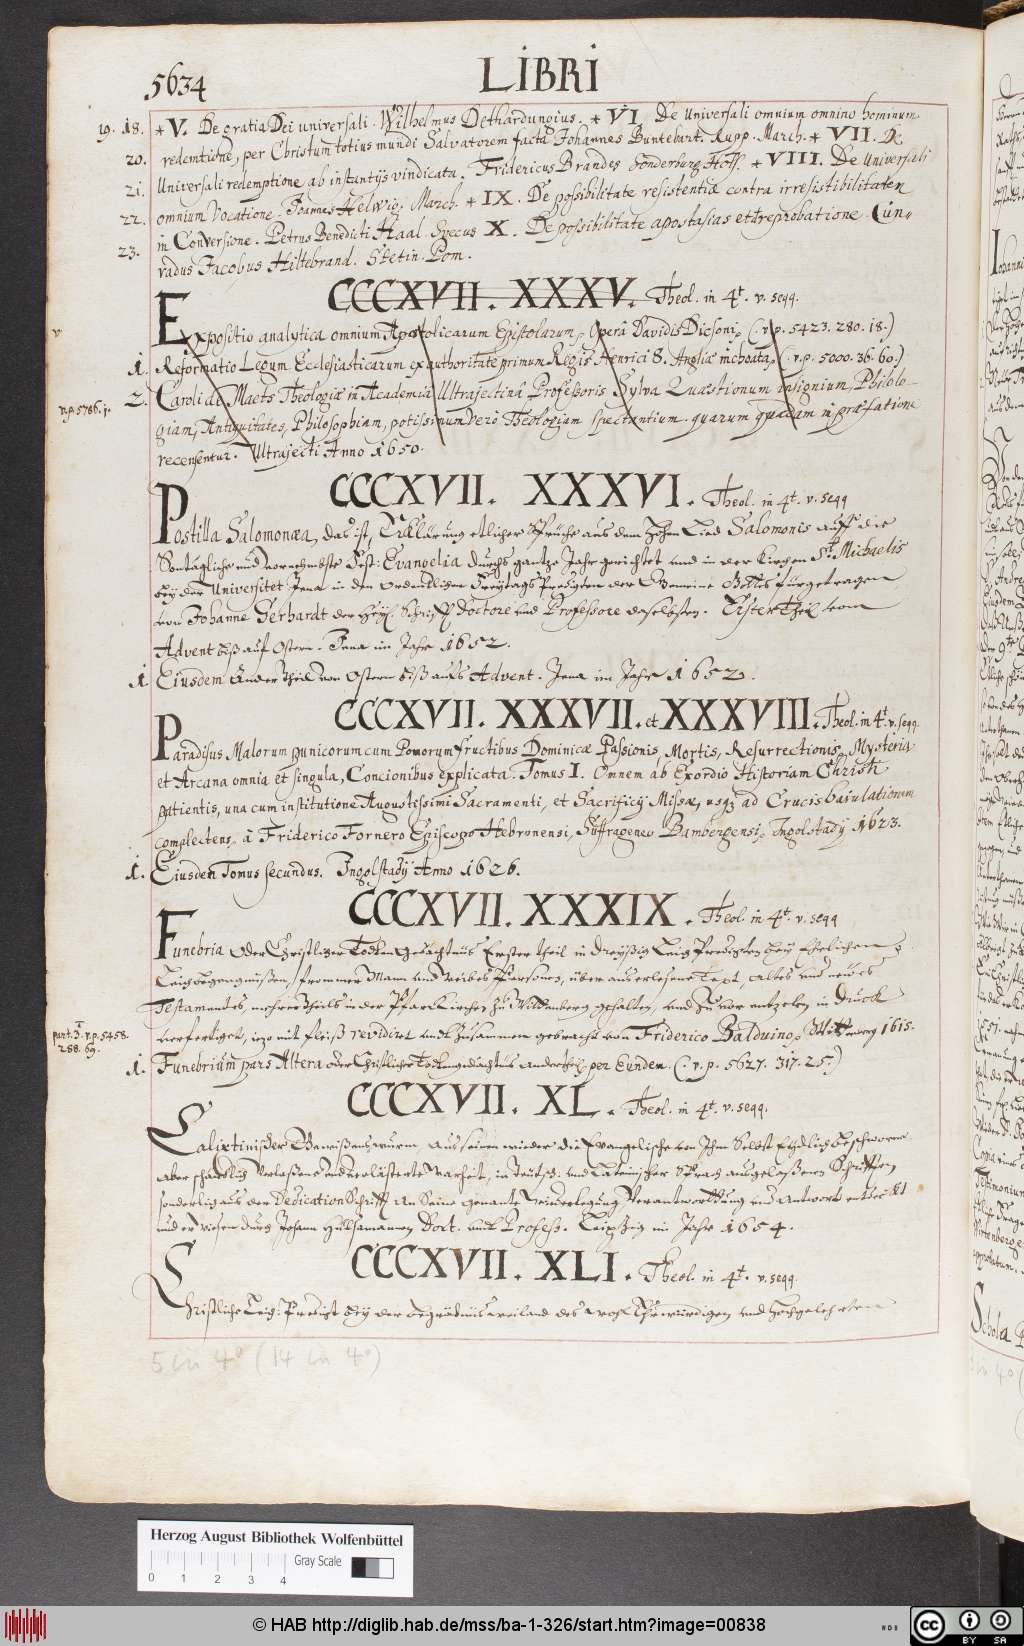 5634
LIBRI
19. 18. + V. De gratia Dei universali. Wilhelmus Dethardungius. + VI. De Universali omnium omnino hominum
20. redemtione, per Christum totius mundi Salvatorem facta Johannes Buntebart. Rupp. March. + VII. De
21. Universali redemptione ab instantijs vindicata. Fridericus Brandes Sonderburg Holf. + VIII. De Universali
22. omnium Vocatione. Joannes Helwig. March. + IX. De possibilitate resistentiæ contra irresistibilitatem
23. in Conversione. Petrus Benedicti Haal Svecus X. De possibilitate apostasias et reprobatione. Cun-
radus Jacobus Hiltebrand. Stetin. Pom.
CCCXVII. XXXV. Theol. in 4t. v. seqq.
v.
Expositio analytica omnium Apostolicarum Epistolarum, Operâ Davidis Dicsoni, (. v. p. 5423. 280. 18.)
1. Reformatio Legum Ecclesiasticarum ex authoritate primum Regis Henrici 8. Angliæ inchoata, (. v. p. 5000. 36. 60.)
v. p. 5786. j.
2. Caroli de Maets Theologiæ in Academia Ultrajectinâ Professoris Sylva Quæstionum insignium, Philolo-
giam, Antiquitates, Philosophiam, potissimum verò Theologiam spectantium. quarum quædam in præfatione
recensentur. Ultrajecti Anno 1650.
CCCXVII. XXXVI. Theol. in 4t. v. seqq
Postilla Salomonæa, das ist, Erklärung etlicher Sprüche aus dem Hohen Lied Salomonis auff die
Sontägliche und vornehmbste Fest: Evangelia durchs gantze Jahr gerichtet und in der Kirchen St. Michaelis
bey der Universitet Jena in den ordentlichen Freytags Predigten der Gemeine Gottes fürgetragen
von Johanne Gerhardt der Heyl. Schrifft Doctore und Professore daselbsten. Erster Theil vom
Advent biß auf Ostern. Jena im Jahr 1652.
1. Eiusdem Ander Theil von Ostern biß aufs Advent. Jena im Jahr 1652.
CCCXVII. XXXVII. et XXXVIII. Theol. in 4t. v. seqq.
Paradisus Malorum punicorum cum Pomorum fructibus Dominicæ Passionis, Mortis, Resurrectionis, Mysteria
et Arcana omnia et singula, Concionibus explicata. Tomus I. Omnem ab Exordio Historiam Christi
patientis, una cum institutione Augustissimi Sacramenti, et Sacrificij Missæ, usq; ad Crucis baiulationem
complectens, à Friderico Fornero Episcopo Hebronensi, Suffraganeo Bambergensi, Ingolstadij 1623.
1. Eiusdem Tomus secundus. Ingolstadij Anno 1626.
CCCXVII. XXXIX. Theol. in 4t. v. seqq
Funebria oder Christlicher Todten Gedächtnüs Erster theil in dreyßig Leich Predigten bey Ehrlichen
Leichbegengnüßen, frommer Mann und weibes Personen, über auserlesene Text, Altes und neues
Testamentes, mehrertheils in der Pfarr Kirchen zu Wittenberg gehalten, und zuvor entzelen in Druck
part. 3. v. p. 5458. 288. 69.
verfertiget, izo mit fleiß revidiret und zusammen gebracht von Friderico Balduino, Wittenberg 1615.
1. Funebrium pars Altera oder Christlicher Todtengedächtnüs ander theil per Eundem. (. v. p. 5627. 317. 25.)
CCCXVII. XL. Theol. in 4t. v. seqq.
Calixtinischer Gewißens wurm aus seinen wieder die Evangelische von Ihm Selbst Eydlich beschworne
Aber schändlich verlaßene und verlästerte warheit, in Teutsch- und Lateinischer Sprach ausgelaßenen Schrifften
sonderlich aus der Dedication Schrifft an Seine genante wiederlegung, Verantworttung und antwort entdeckt
und erwiesen durch Johann Hülsemannen Doct. und Profess. Leipzig im Jahr 1654.
CCCXVII. XLI. Theol. in 4t. v. seqq.
Christliche Leich: Predigt bey der begräbnis weiland des wohl Ehrwürdigen und Hochgelehrten
5 in 4° (14 in 4°)
Herzog August Bibliothek Wolfenbüttel
Gray Scale
0 1 2 3 4
© HAB http://diglib.hab.de/mss/ba-1-326/start.htm?image=00838
cc BY SA